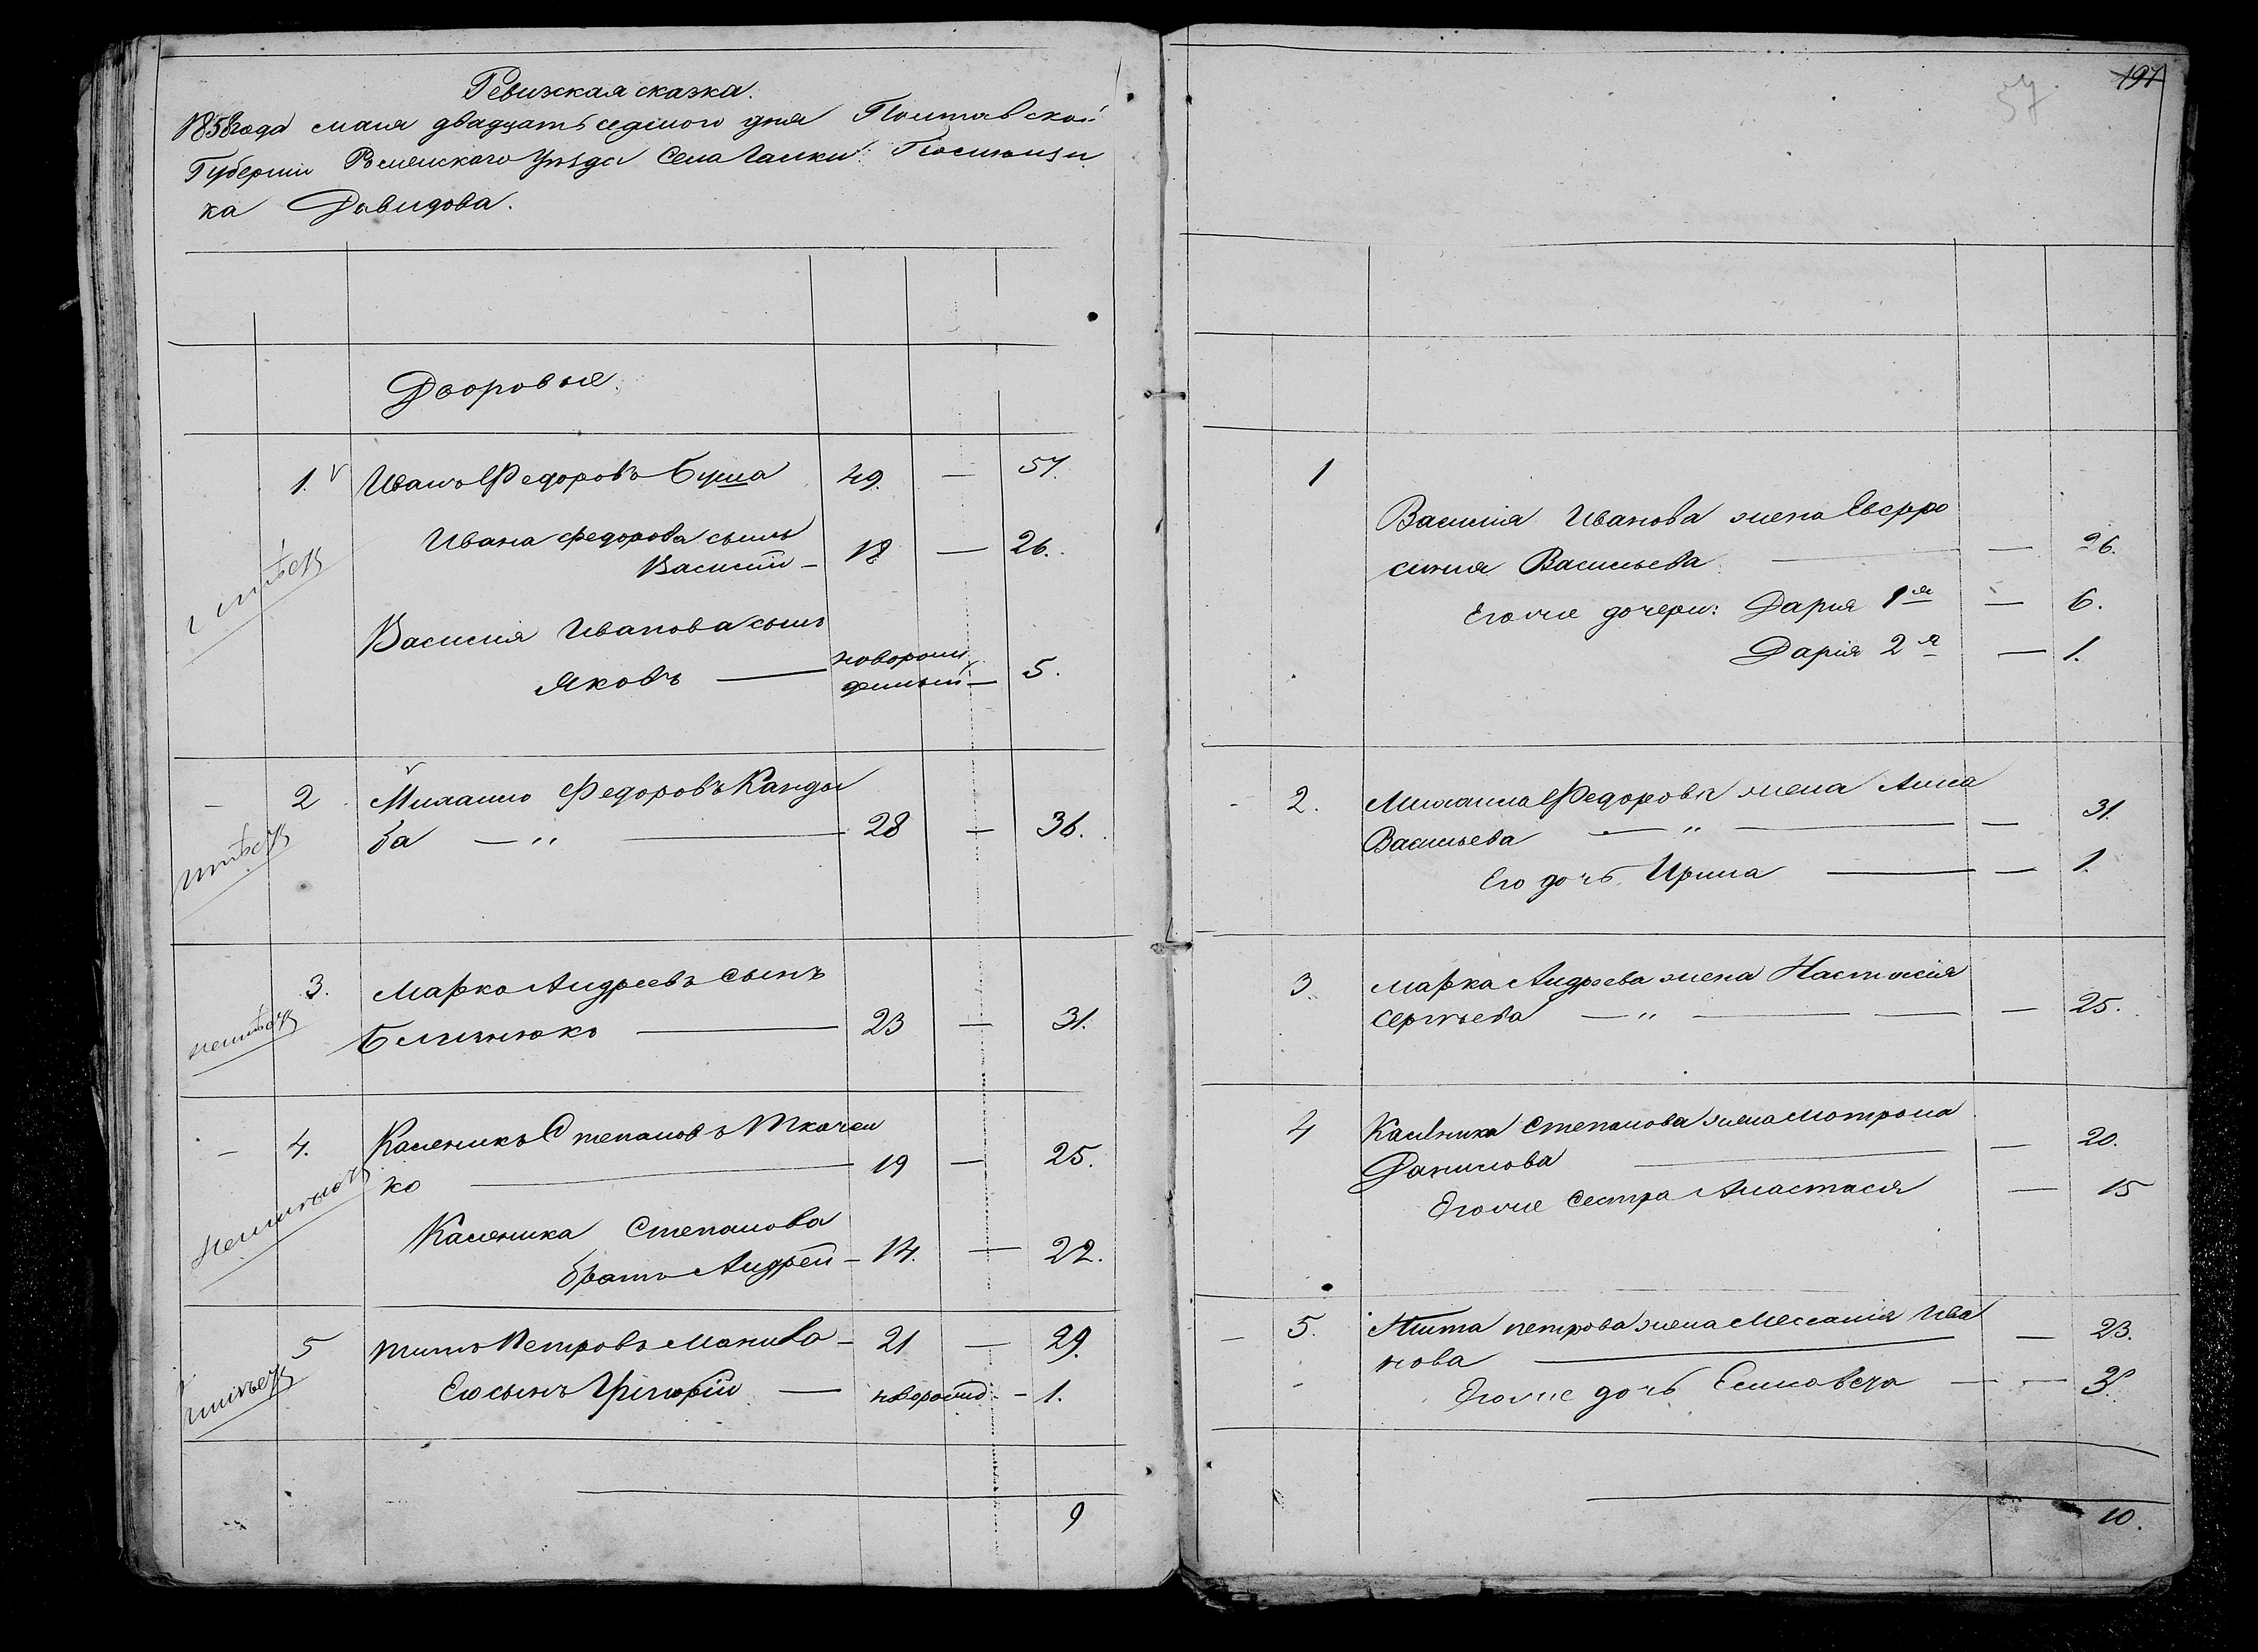 Ревижская сказка.
1858 года мая двадцать седмого дня Полтавской
Губернии Роменского Уезда Села Галки Помѣщи
ка Давидова.
Дворовые.
1. Иванъ Федоровъ Буша 49. — 57.
Ивана Федорова сынъ
Василій — 18 — 26.
Василия Иванова сынъ
Яковъ — новорож
денный — 5.
2 Михаило Федоровъ Канды
ба — " — 28 — 36.
3. Марко Андреевъ сынъ
Близнюкъ — 23 — 31.
4. Каленикъ Степановъ Ткачен
ко — 19 — 25.
Каленика Степанова
братъ Андрей — 14. — 22.
5 Титъ Петровъ Манива — 21 — 29.
Его сынъ Григорій — новорожд — 1.
9
197
57
1
Василия Иванова жена Евфро
синия Васильева — 26.
Его же дочери: Дария 1я — 6.
Дарія 2я — 1.
2. Михаила Федорова жена Анна
Васильева — " — 31
Его дочь Ирина — 1.
3. Марка Андреева жена Настасія
Сергѣева — " — 25.
4 Каленика Степанова жена Мотрона
Данилова — 20.
Его же сестра Анастасія — 15
5. Тита Петрова жена Мелания Ива
нова — 23.
Его же дочь Елисавета — 3.
10.